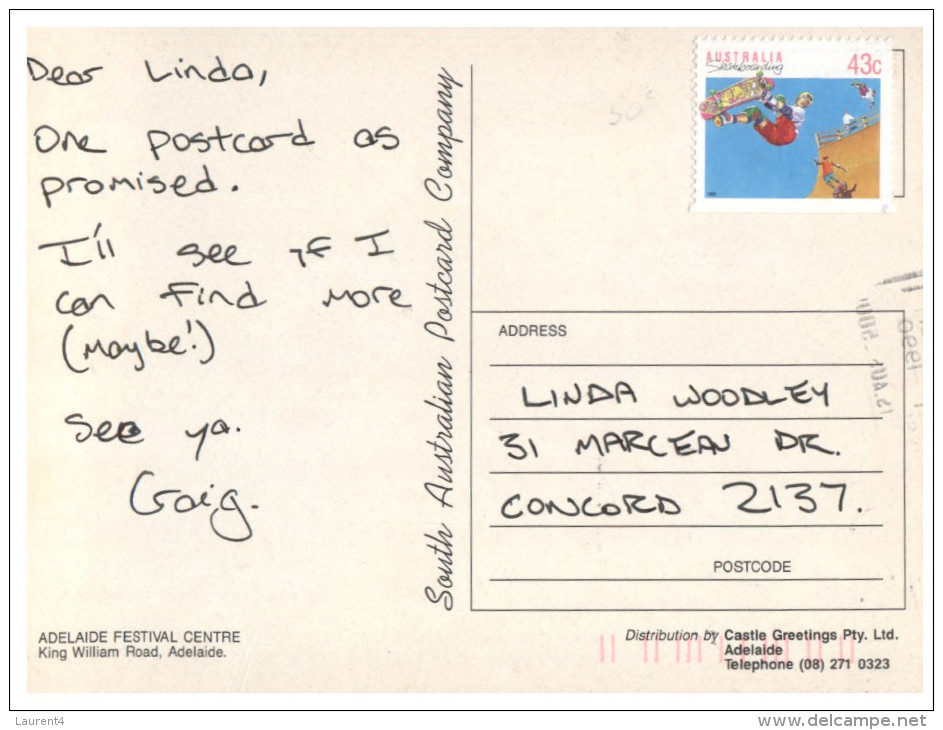 Dear Linda,
One postcard as
promised.
I'll see if I
can find more
(maybe!)
See ya.
Craig.
ADELAIDE FESTIVAL CENTRE
King William Road, Adelaide.
South Australian Postcard Company
AUSTRALIA
Skateboarding
43c
50c
1990
ADDRESS
LINDA WOODLEY
31 MARCEAU DR.
CONCORD 2137.
POSTCODE
Distribution by Castle Greetings Pty. Ltd.
Adelaide
Telephone (08) 271 0323
Laurent4
www.delcampe.net